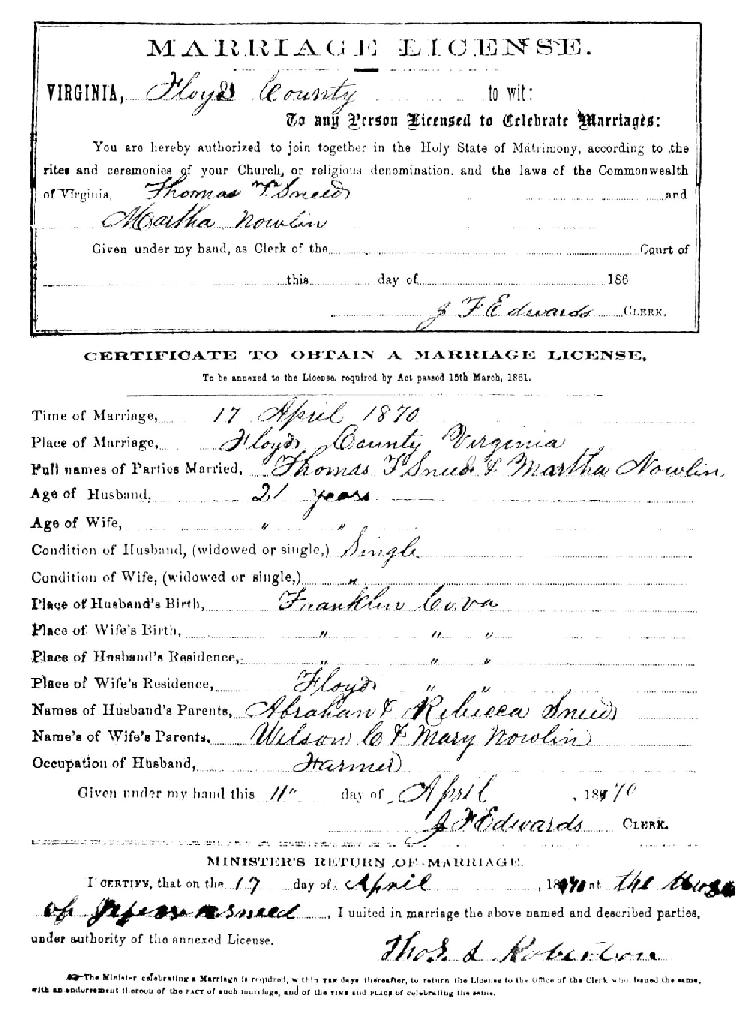 MARRIAGE LICENSE.
VIRGINIA, Floyd County to wit:
To any Person Licensed to Celebrate Marriages:
You are hereby authorized to join together in the Holy State of Matrimony, according to the
rites and ceremonies of your Church, or religious denomination, and the laws of the Commonwealth
of Virginia, Thomas T Sneed and
Martha Nowlin
Given under my hand, as Clerk of the Court of
this day of 186
J F Edwards CLERK.
CERTIFICATE TO OBTAIN A MARRIAGE LICENSE,
To be annexed to the License, required by Act passed 15th March, 1861.
Time of Marriage, 17 April 1870
Place of Marriage, Floyd County Virginia
Full names of Parties Married, Thomas T Sneed & Martha Nowlin
Age of Husband, 21 years
Age of Wife, " "
Condition of Husband, (widowed or single,) Single
Condition of Wife, (widowed or single,) "
Place of Husband's Birth, Franklin Co. va
Place of Wife's Birth, " " "
Place of Husband's Residence, " " "
Place of Wife's Residence, Floyd " "
Names of Husband's Parents, Abraham & Rebecca Sneed
Name's of Wife's Parents, Wilson C & Mary Nowlin
Occupation of Husband, Farmer
Given under my hand this 11" day of April, 1870
J F Edwards CLERK.
MINISTER'S RETURN OF MARRIAGE.
I CERTIFY, that on the 17 day of April, 1870 at the
of Sneed, I united in marriage the above named and described parties,
under authority of the annexed License.
Thos L Robertson
The Minister celebrating a Marriage is required, within TEN days thereafter, to return the License to the Office of the Clerk who issued the same,
with an endorsement thereon of the FACT of such marriage, and of the TIME and PLACE of celebrating the same.